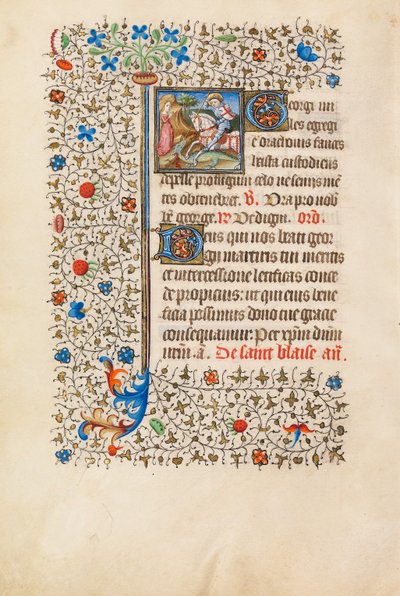 Georgi mi
les egregi
e orationis fauces
xp̄ista custodiens
repelle prodigum celo ne semꝑ mē
tes obtenebret. V̄. Ora pro nob̄
bē george. R̄ Ut digni. ord.
Deus qui nos beati geor
gii martiris tui meritis
et intercessione letificas conce
de propicius: ut qui eius bene
ficia possimus dono tue gracie
consequamur. Per xp̄m dūm
nrm̄. a. De saint blaise añ.